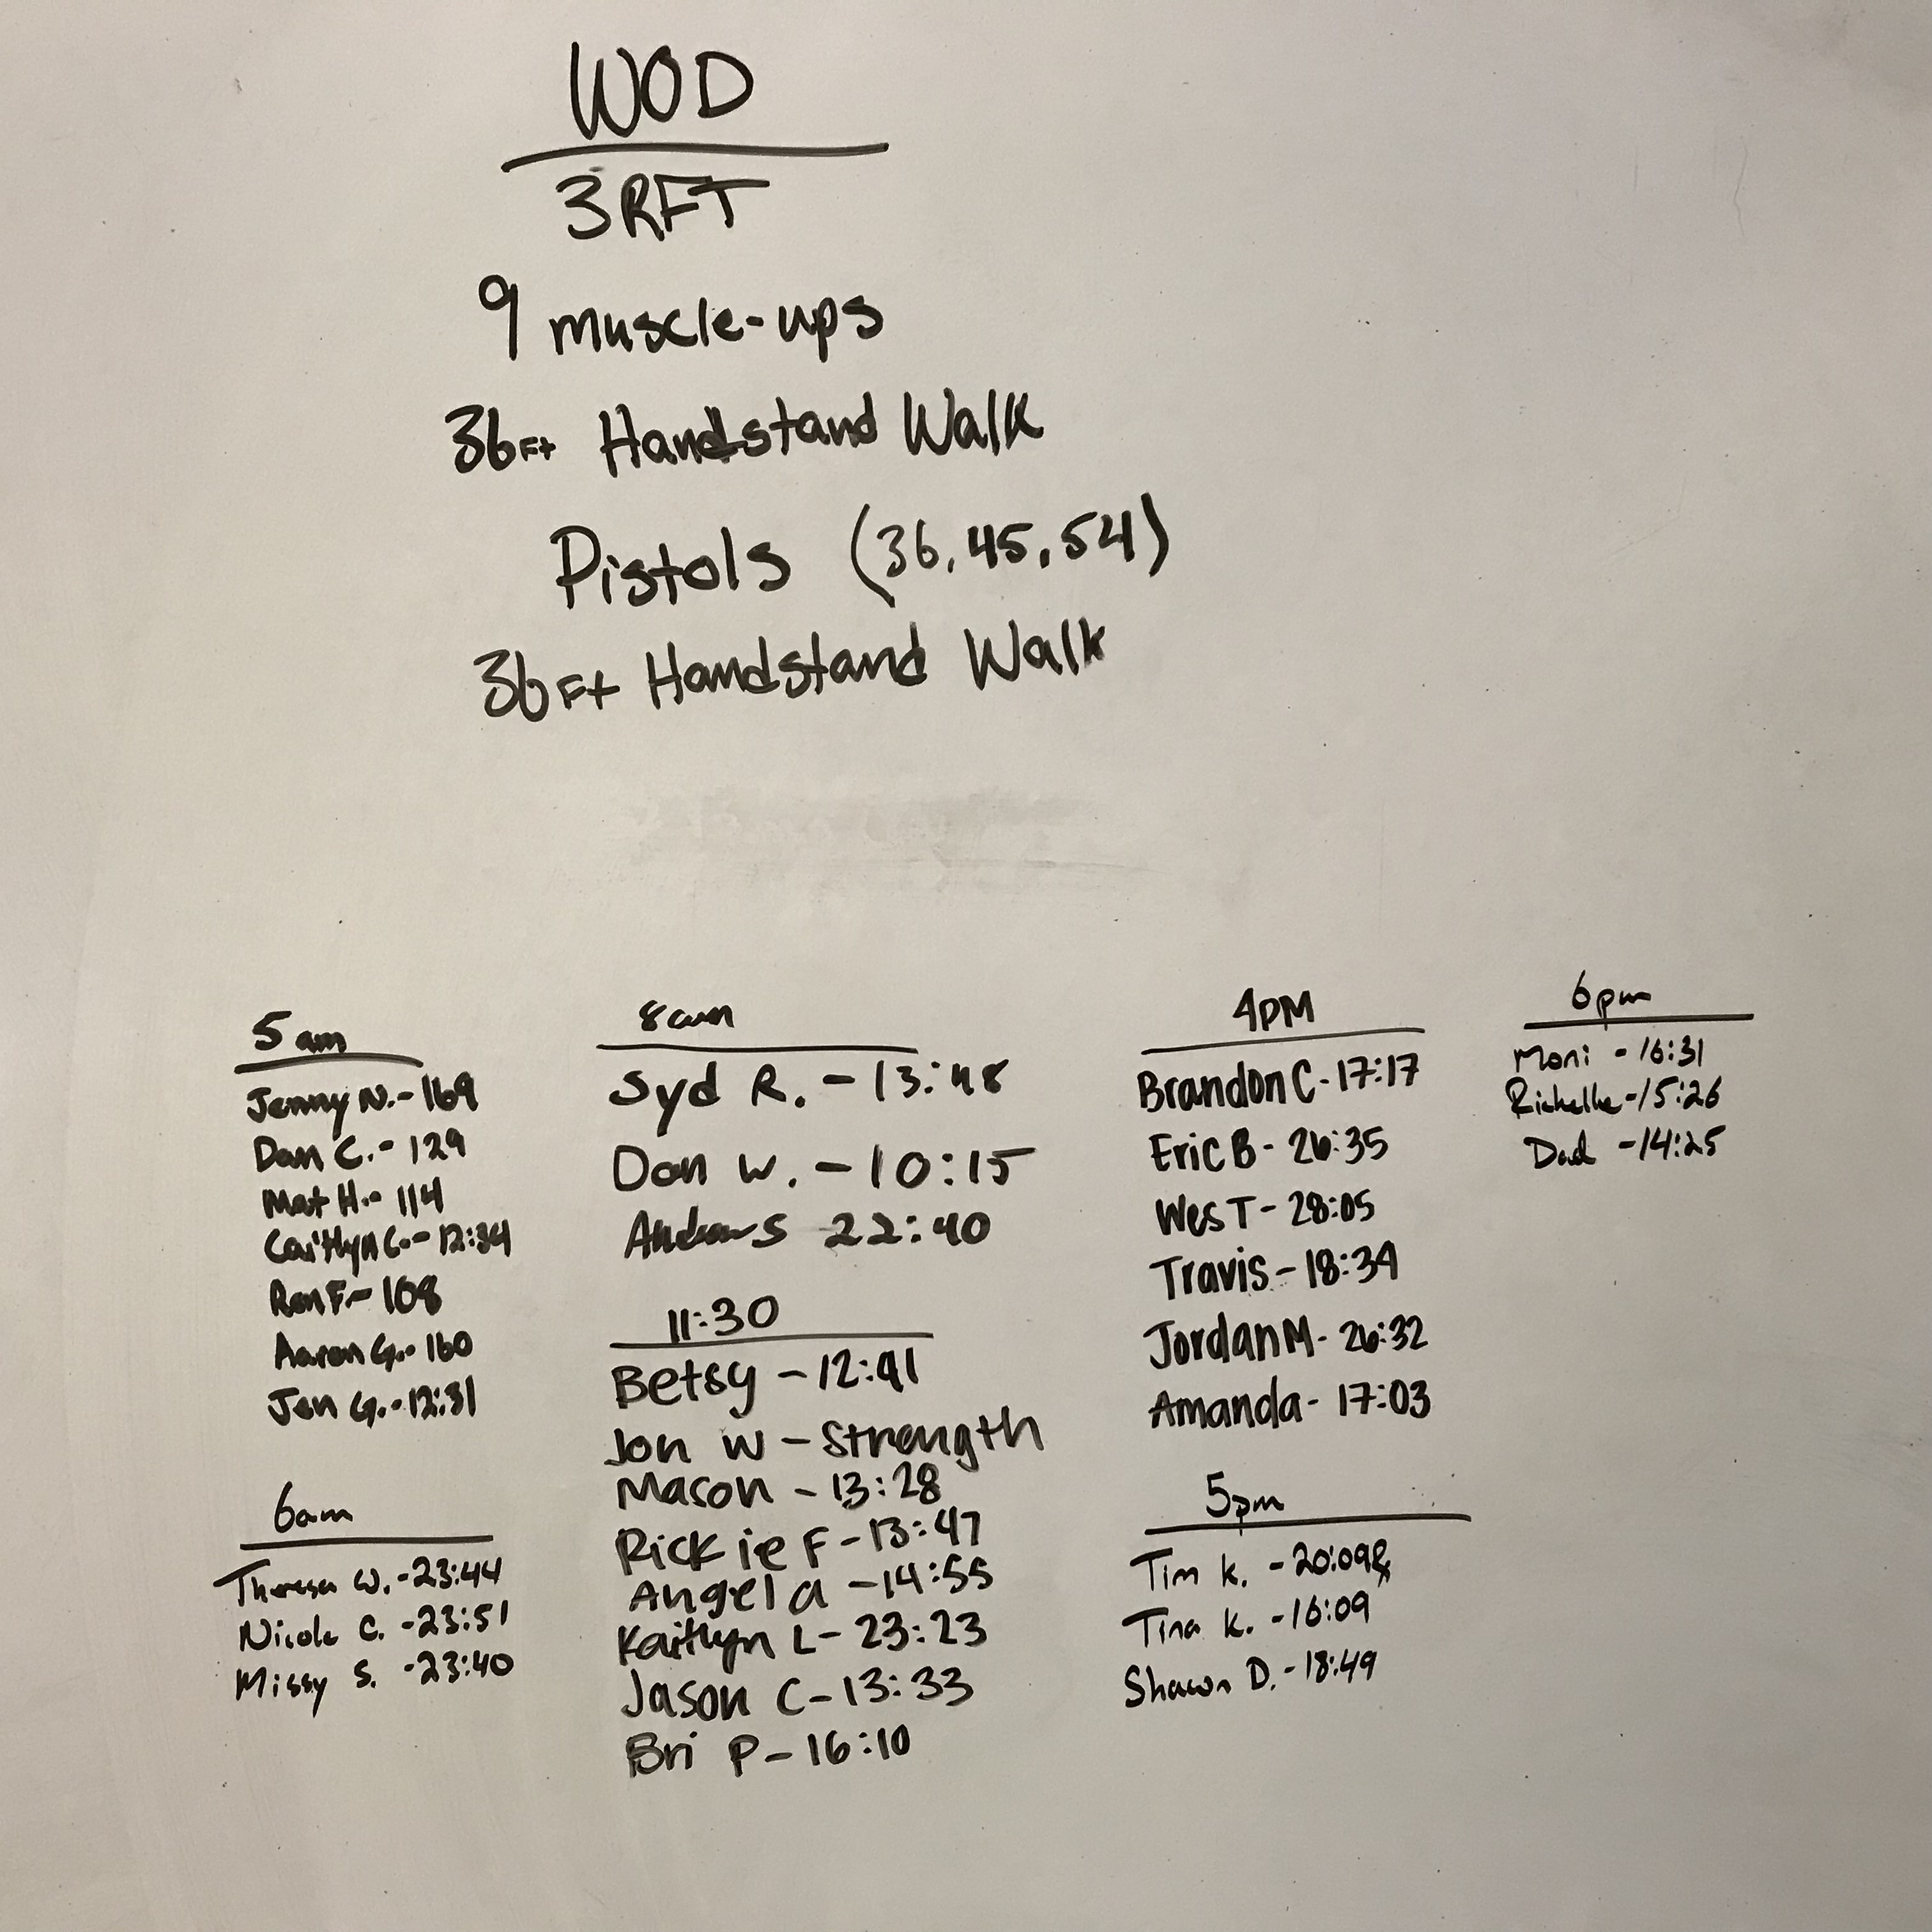 WOD
3RFT
9 muscle-ups
36Ft Handstand Walk
Pistols (36, 45, 54)
36Ft Handstand Walk
5am
Jenny N. - 169
Dan C. - 129
Mat H. - 114
Caitlyn C. - 12:34
Ron F. - 108
Aaron G. - 160
Jen G. - 12:31
6am
Theresa W. - 23:44
Nicole C. - 23:51
Missy S. - 23:40
8am
Syd R. - 13:48
Don W. - 10:15
Andrew S 22:40
11:30
Betsy - 12:41
Jon W - Strength
Mason - 13:28
Rickie F - 13:47
Angela - 14:55
Kaitlyn L - 23:23
Jason C - 13:33
Bri P - 16:10
4PM
Brandon C - 17:17
Eric B - 26:35
Wes T - 28:05
Travis - 18:34
Jordan M - 26:32
Amanda - 17:03
5pm
Tim K. - 20:09
Tina K. - 16:09
Shawn D. - 18:49
6pm
Moni - 16:31
Richelle - 15:26
Dad - 14:25